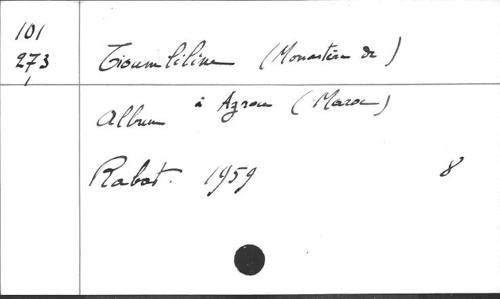 101
273 Tioumliline (Monastère de)
à Azrou (Maroc)
Album
Rabat. 1959 8